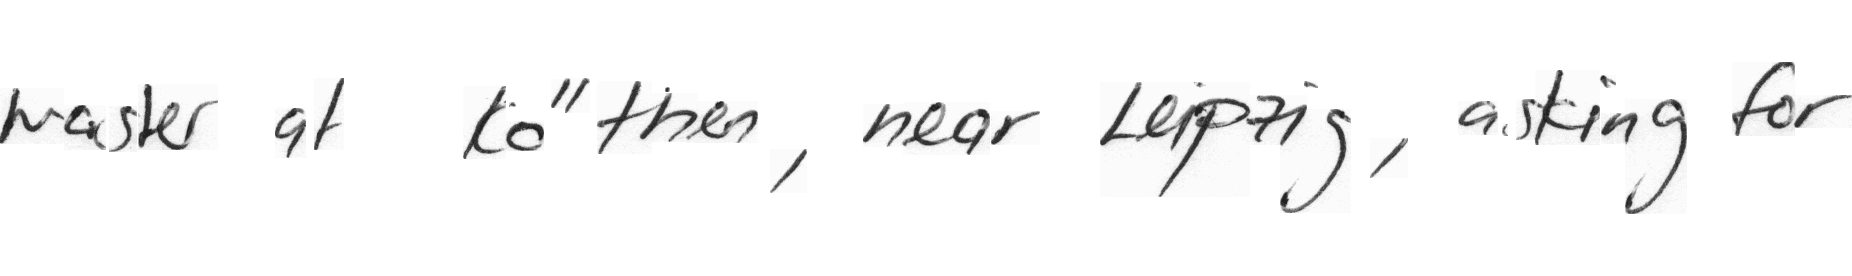 master at Ko"then, near Leipzig, asking for